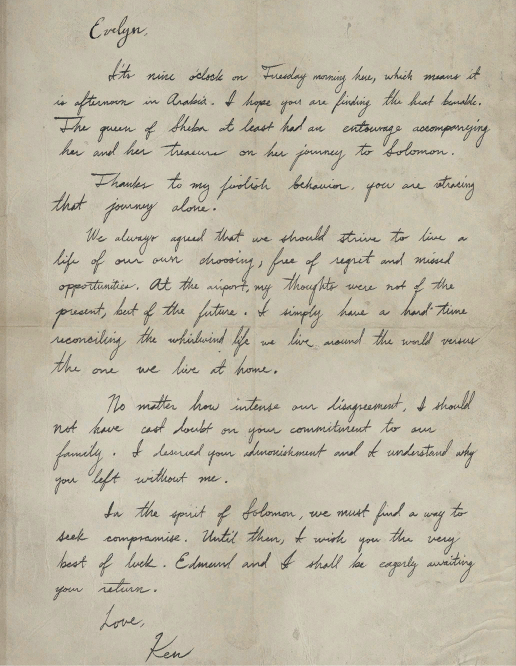 Evelyn,
It's nine o'clock on Tuesday morning here, which means it
is afternoon in Arabia. I hope you are finding the heat bearable.
The queen of Sheba at least had an entourage accompanying
her and her treasure on her journey to Solomon.
Thanks to my foolish behavior, you are retracing
that journey alone.
We always agreed that we should strive to live a
life of our own choosing, free of regret and missed
opportunities. At the airport, my thoughts were not of the
present, but of the future. I simply have a hard time
reconciling the whirlwind life we live around the world versus
the one we live at home.
No matter how intense our disagreement, I should
not have cast doubt on your commitment to our
family. I deserved your admonishment and I understand why
you left without me.
In the spirit of Solomon, we must find a way to
seek compromise. Until then, I wish you the very
best of luck. Edmund and I shall be eagerly awaiting
your return.
Love,
Ken